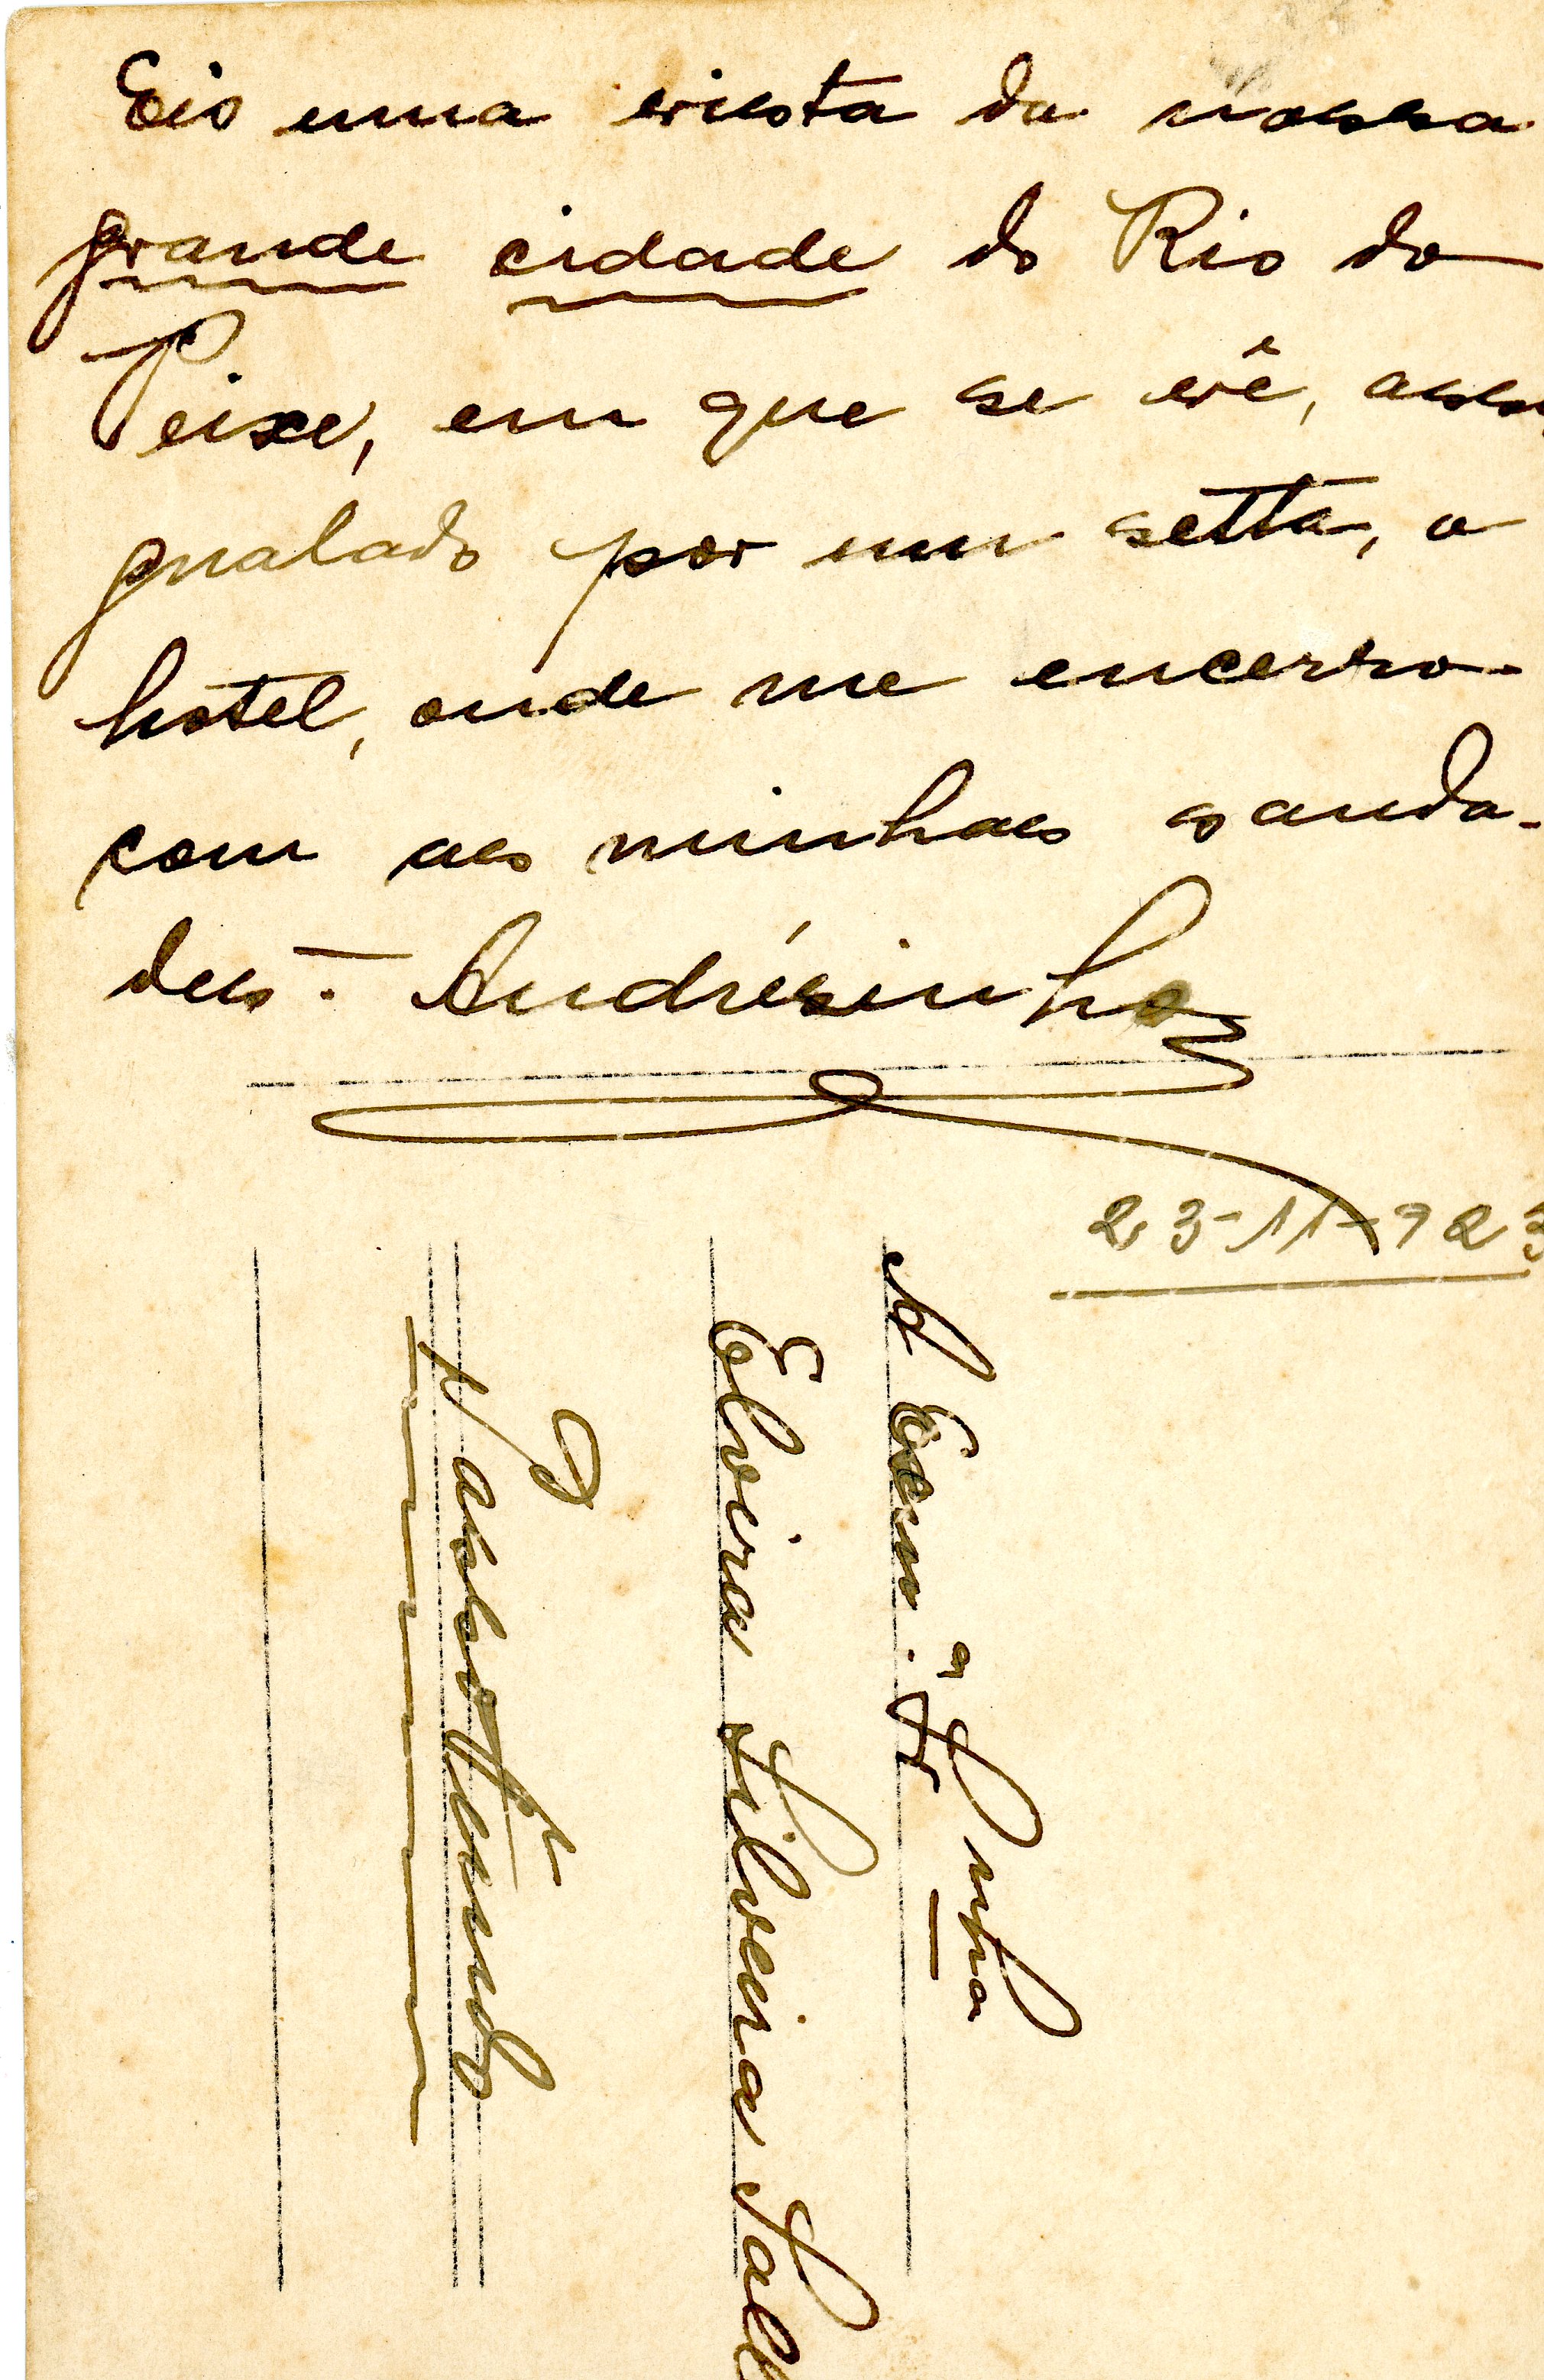 Eis uma vista da nossa
grande cidade do Rio do
Peixe, em que se vê, assi
gnalado por um setta, o
hotel, onde me encerro
com as minhas sauda-
des. - Andrésinho
23-11-923
A Exm.ª Snr.ª
Elvira Silveira
Passo Fundo